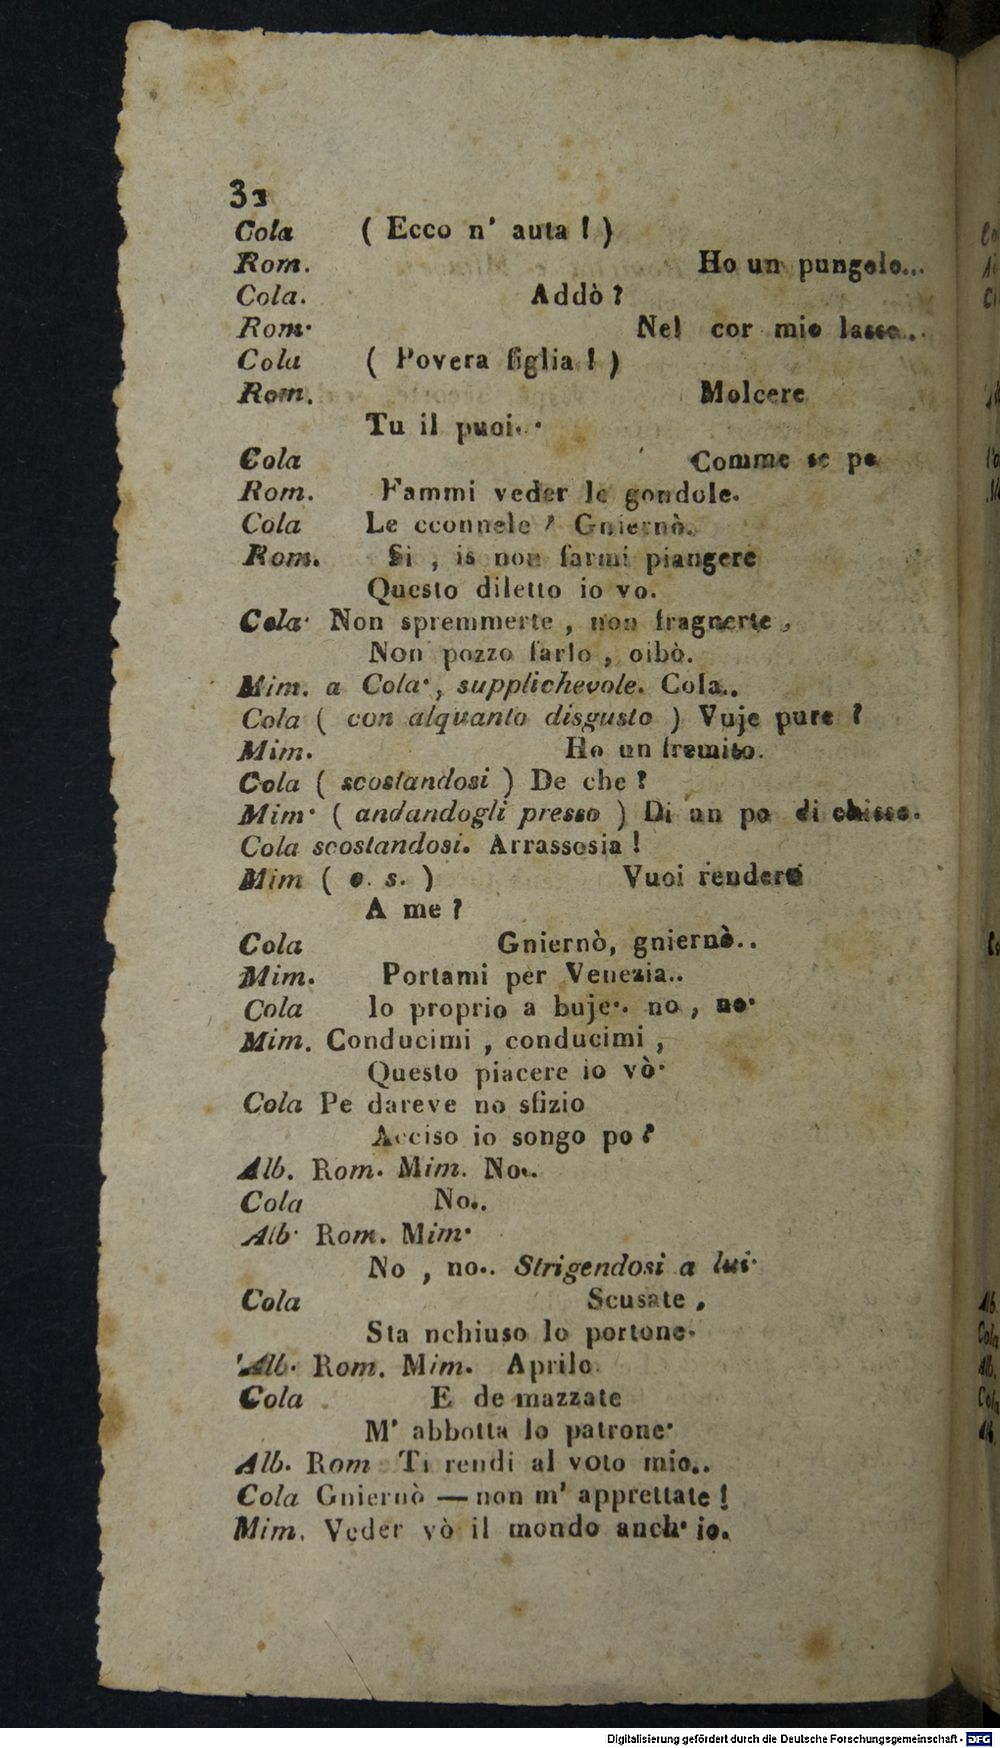 32
Cola ( Ecco n' auta ! )
Rom. Ho un pungolo...
Cola. Addò ?
Rom. Nel cor mio lasso..
Cola ( Povera figlia ! )
Rom. Molcere
Tu il puoi..
Cola Comme se po
Rom. Fammi veder le gondole.
Cola Le cconnele ? Gniernò.
Rom. Si , is non farmi piangere
Questo diletto io vo.
Cola. Non spremmerte , non fragnerte ,
Non pozzo farlo , oibò.
Mim. a Cola. , supplichevole. Cola..
Cola ( con alquanto disgusto ) Vuje pure ?
Mim. Ho un fremito.
Cola ( scostandosi ) De che ?
Mim. ( andandogli presso ) Di un po di chisso.
Cola scostandosi. Arrassosia !
Mim ( c. s. ) Vuoi rendere
A me ?
Cola Gniernò, gniernò..
Mim. Portami per Venezia..
Cola Io proprio a buje.. no , no.
Mim. Conducimi , conducimi ,
Questo piacere io vò.
Cola Pe dareve no sfizio
Acciso io songo po ?
Alb. Rom. Mim. No..
Cola No..
Alb. Rom. Mim.
No , no.. Strigendosi a lui.
Cola Scusate ,
Sta nchiuso lo portone.
Alb. Rom. Mim. Aprilo.
Cola E de mazzate
M' abbotta lo patrone.
Alb. Rom Ti rendi al voto mio..
Cola Gniernò — non m' apprettate !
Mim. Veder vò il mondo anch' io.
Digitalisierung gefördert durch die Deutsche Forschungsgemeinschaft - DFG